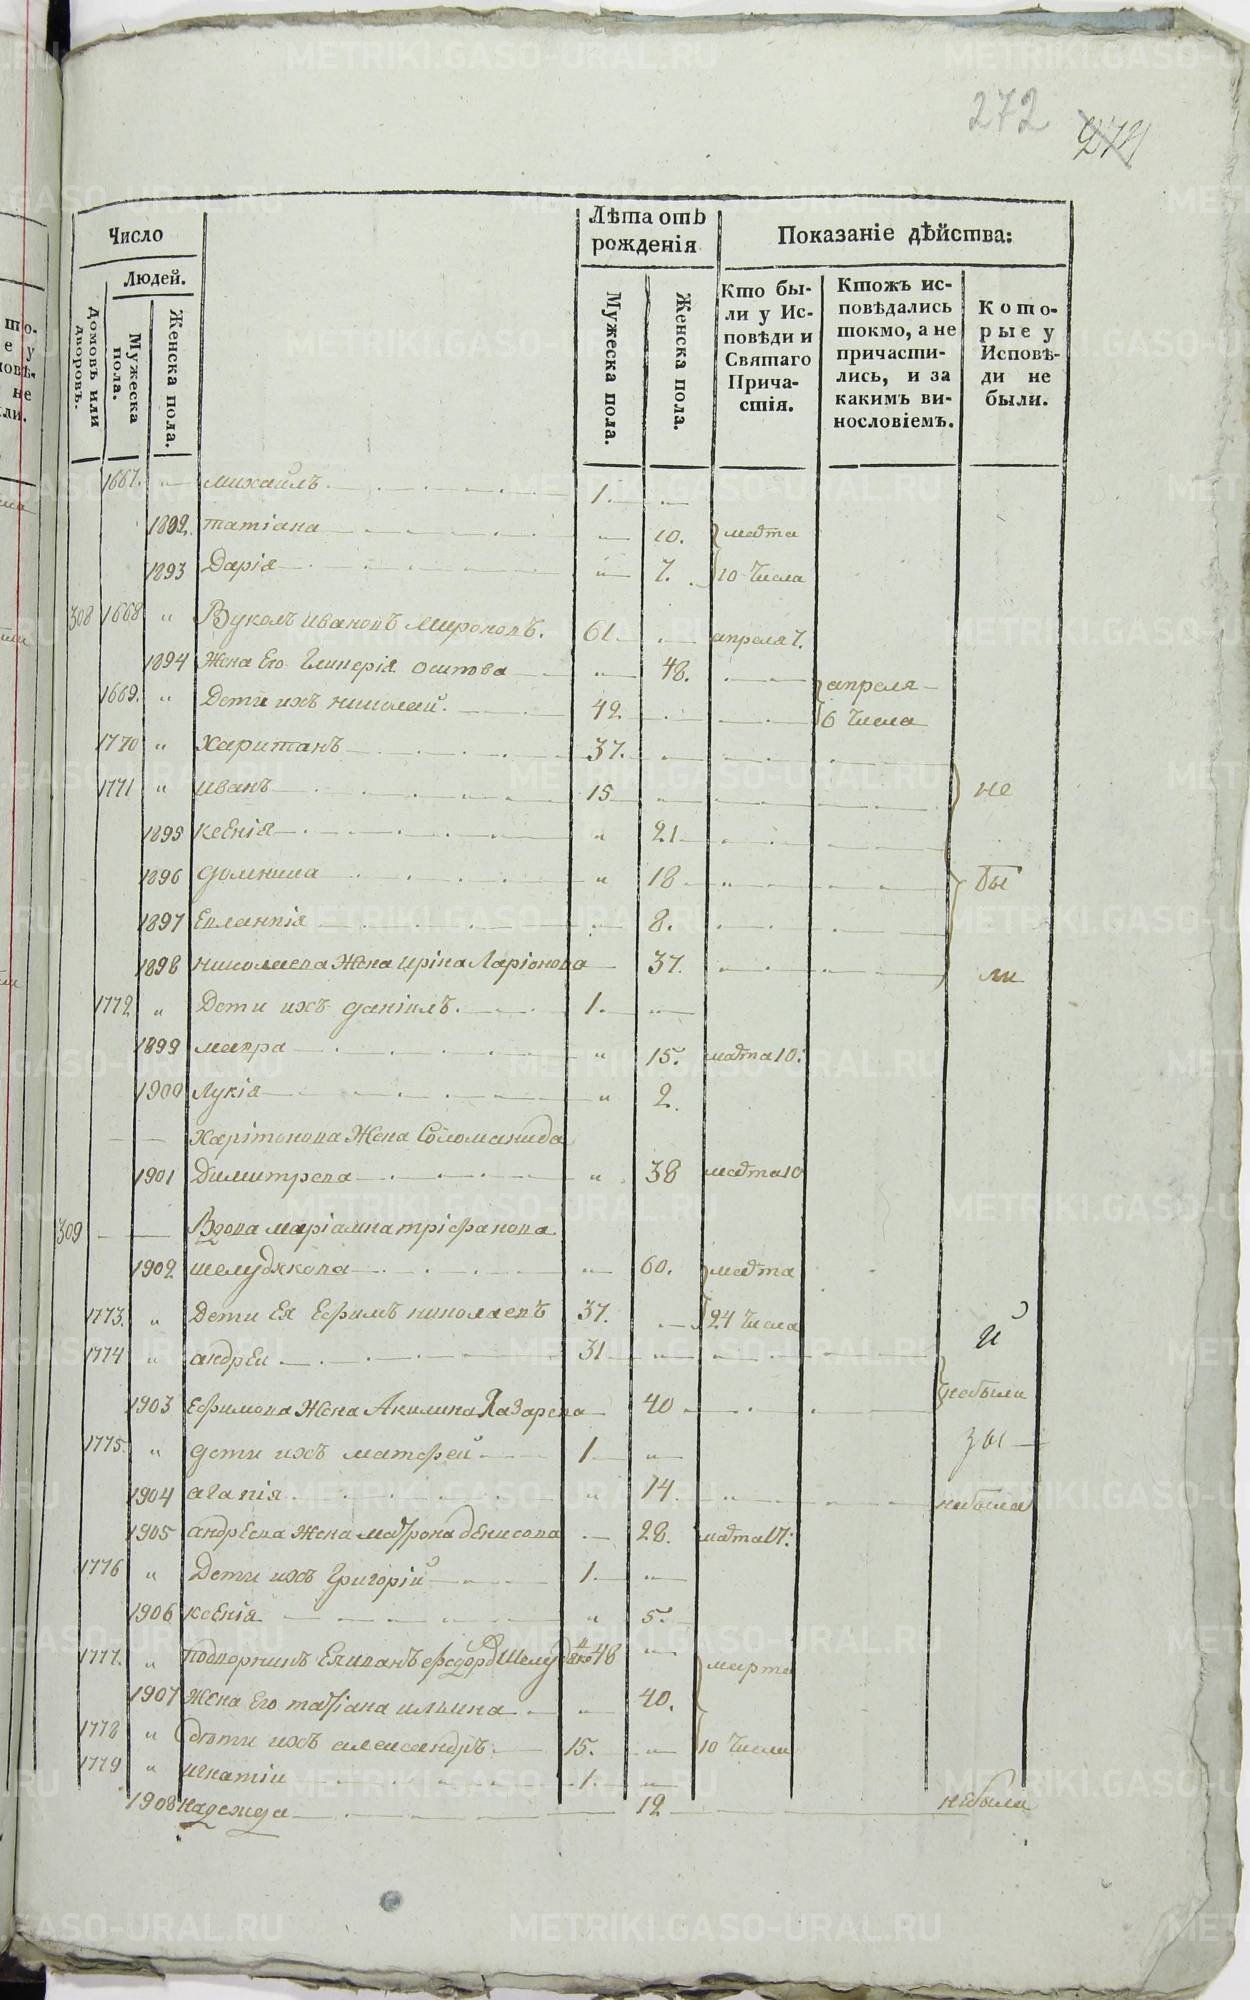 272
Число
Людей.
Домовъ или дворовъ.
Мужеска пола.
Женска пола.
Лѣта отъ рожденія
Мужеска пола.
Женска пола.
Показаніе дѣйства:
Кто были у Исповѣди и Святаго Причастія.
Ктожъ исповѣдались токмо, а не причастились, и за какимъ винословіемъ.
Которые у Исповѣди не были.
1667. михайлъ 1.
1892. татіана 10. марта
1893 Дарія 7. 10 числа
308 1668 Вуколъ ивановъ мироновъ. 61. апреля 7.
1894 Жена Его Гликерія осипова 48. апреля
1669. Дети ихъ николай. 42 6 числа
1770 хаританъ 37.
1771 иванъ 15 не
1895 ксенія 21
1896 домника 18 бы
1897 Евлампія 8.
1898 николаева Жена иріна Ларіонова 37. ли
1772 Дети ихъ даніилъ. 1.
1899 мавра 15. марта 10.
1900 Лукія 2.
харітонова Жена Соломанида
1901 Димитрева 38 марта 10
309 Вдова маріамна тріфанова
1902 шелудякова 60. марта
1773. Дети Ея Ефимъ николаевъ 37. 24 числа
1774 андрей 31
1903 Ефимова Жена Акилина Лазарева 40 небыли
1775. дети ихъ матфей 1
1904 агапія 14. небыла
1905 андреева Жена матрона денисова 28. марта 17:
1776 Дети ихъ Григорій 1.
1906 ксенія 5.
1777. подворникъ 48 марта
1907 Жена Его татіана ильина 40.
1778 дѣти ихъ александръ 15. 10 числа
1779 игнатіи 1.
1908 надежда 12 небыла